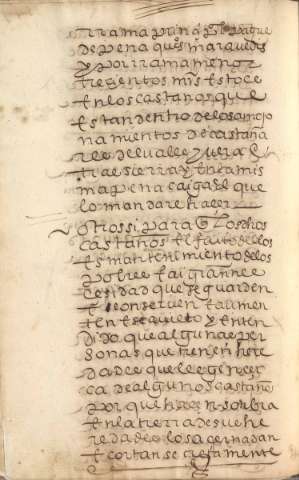 rrama prinçipal pague
de pena quis maravedis
y por rrama menor
trezentos mrs Esto ce
En los castaños que
Estan dentro de los amojo
namientos de castaña
rEs del valle y vera
tra e sierra y En la mis
ma pena cayga El que
lo mandare hazer
otrossi para q los dhos
castaños El fruto dellos
Es mantenimiento de los
pobres E ai gran ne
cesidad que se guarden
E conserven E aumen
ten E seguito y Enten
dido que algunas per
sonas que tienen here
dades que lleguen çer
ca de algunos castaños
por que hazen sombra
En la tierra de su he
redad E los açernadan
E cortan secretamente